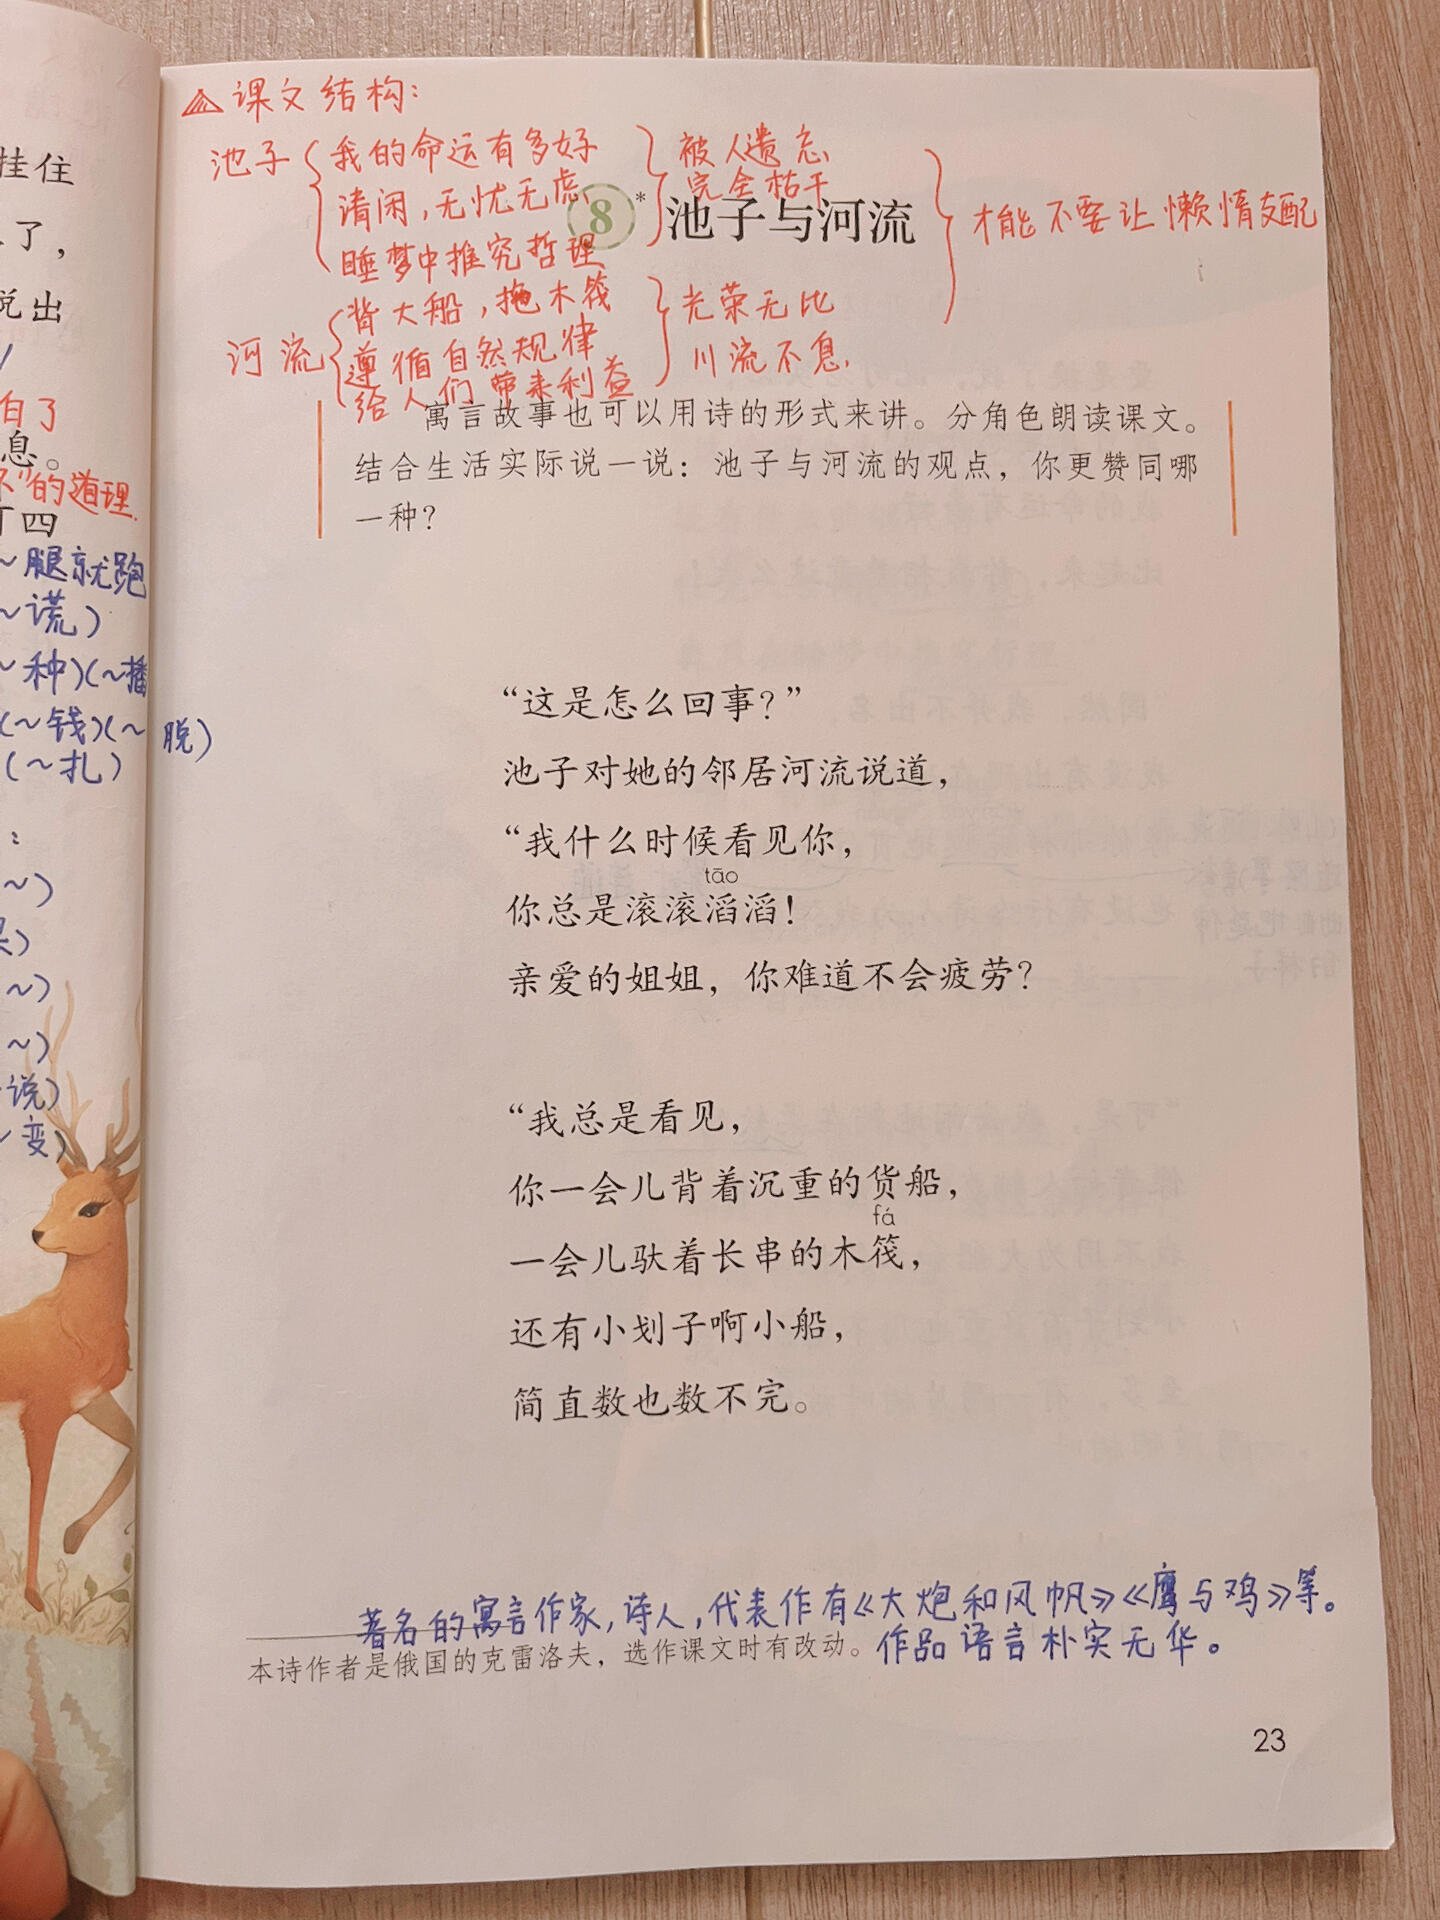 挂住
了，
说出
白了
息。
”的道理.
四
~腿就跑
~谎）
~种）（~播
（~钱）（~脱）
（~扎）
：
~）
~）
~）
说）
~变）
课文结构：
池子
我的命运有多好
清闲，无忧无虑
睡梦中推究哲理
被人遗忘
完全枯干
河流
背大船，拖木筏
遵循自然规律
给人们带来利益
光荣无比
川流不息.
才能不要让懒惰支配
8 * 池子与河流
寓言故事也可以用诗的形式来讲。分角色朗读课文。
结合生活实际说一说：池子与河流的观点，你更赞同哪
一种？
“这是怎么回事？”
池子对她的邻居河流说道，
“我什么时候看见你，
tāo
你总是滚滚滔滔！
亲爱的姐姐，你难道不会疲劳？
“我总是看见，
你一会儿背着沉重的货船，
fá
一会儿驮着长串的木筏，
还有小划子啊小船，
简直数也数不完。
著名的寓言作家，诗人，代表作有《大炮和风帆》《鹰与鸡》等。
本诗作者是俄国的克雷洛夫，选作课文时有改动。 作品语言朴实无华。
23